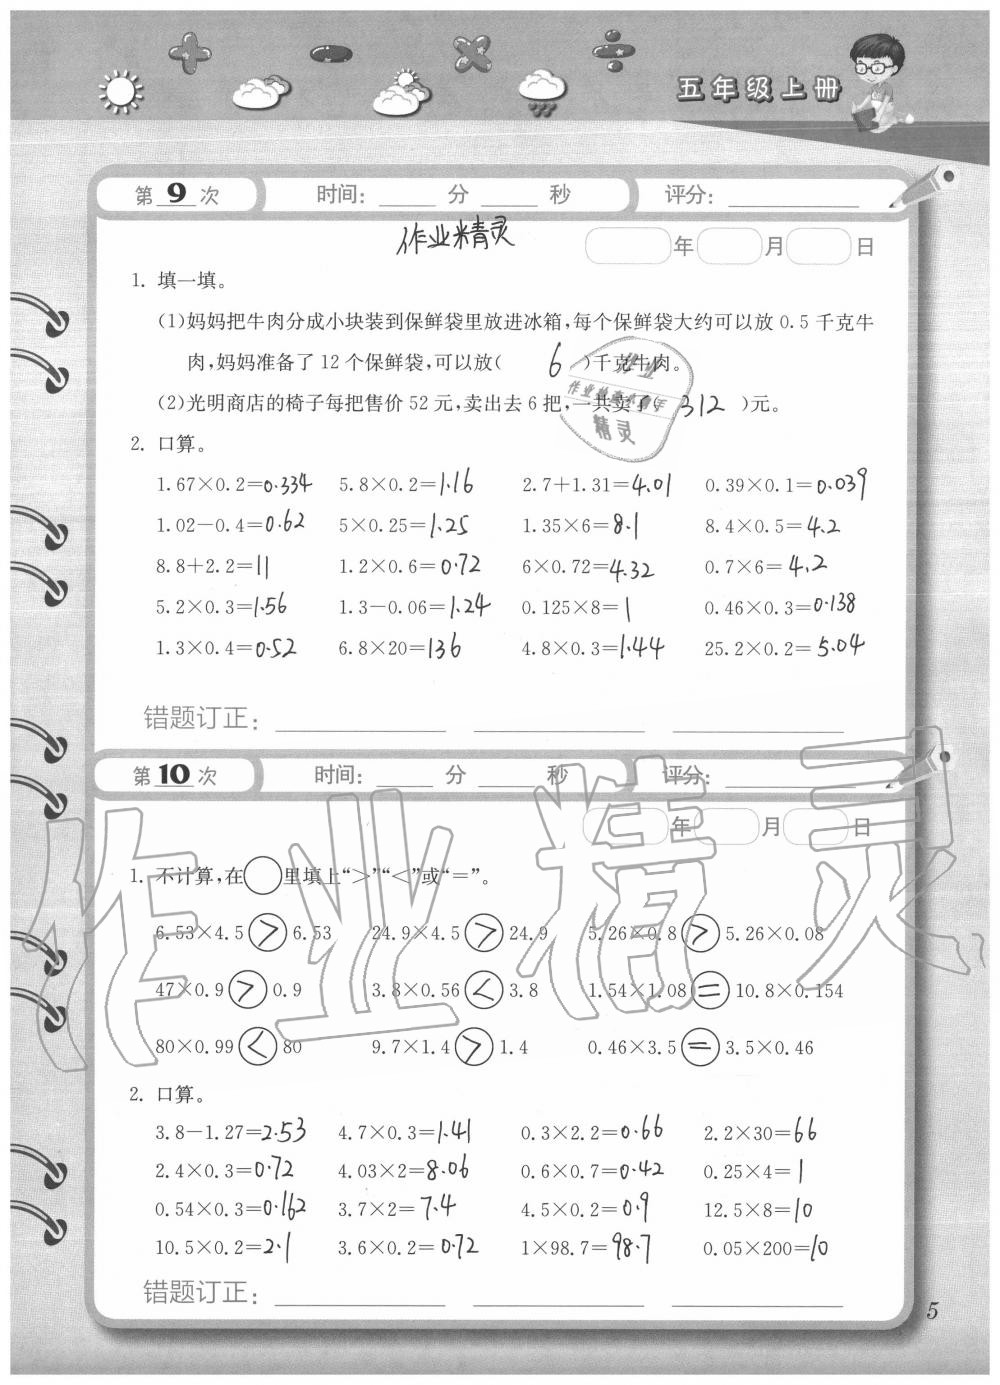 五年级上册
第 9 次 时间: 分 秒 评分:
作业精灵
年 月 日
1. 填一填。
(1)妈妈把牛肉分成小块装到保鲜袋里放进冰箱,每个保鲜袋大约可以放 0.5 千克牛
肉,妈妈准备了 12 个保鲜袋,可以放( 6 )千克牛肉。
(2)光明商店的椅子每把售价 52 元,卖出去 6 把,一共卖了( 312 )元。
2. 口算。
1.67×0.2=0.334 5.8×0.2=1.16 2.7+1.31=4.01 0.39×0.1=0.039
1.02-0.4=0.62 5×0.25=1.25 1.35×6=8.1 8.4×0.5=4.2
8.8+2.2=11 1.2×0.6=0.72 6×0.72=4.32 0.7×6=4.2
5.2×0.3=1.56 1.3-0.06=1.24 0.125×8=1 0.46×0.3=0.138
1.3×0.4=0.52 6.8×20=136 4.8×0.3=1.44 25.2×0.2=5.04
错题订正:
第 10 次 时间: 分 秒 评分:
年 月 日
1. 不计算,在○里填上“>”“<”或“=”。
6.53×4.5 > 6.53 24.9×4.5 > 24.9 5.26×0.8 > 5.26×0.08
47×0.9 > 0.9 3.8×0.56 < 3.8 1.54×1.08 = 10.8×0.154
80×0.99 < 80 9.7×1.4 > 1.4 0.46×3.5 = 3.5×0.46
2. 口算。
3.8-1.27=2.53 4.7×0.3=1.41 0.3×2.2=0.66 2.2×30=66
2.4×0.3=0.72 4.03×2=8.06 0.6×0.7=0.42 0.25×4=1
0.54×0.3=0.162 3.7×2=7.4 4.5×0.2=0.9 12.5×8=10
10.5×0.2=2.1 3.6×0.2=0.72 1×98.7=98.7 0.05×200=10
错题订正:
5
作业精灵